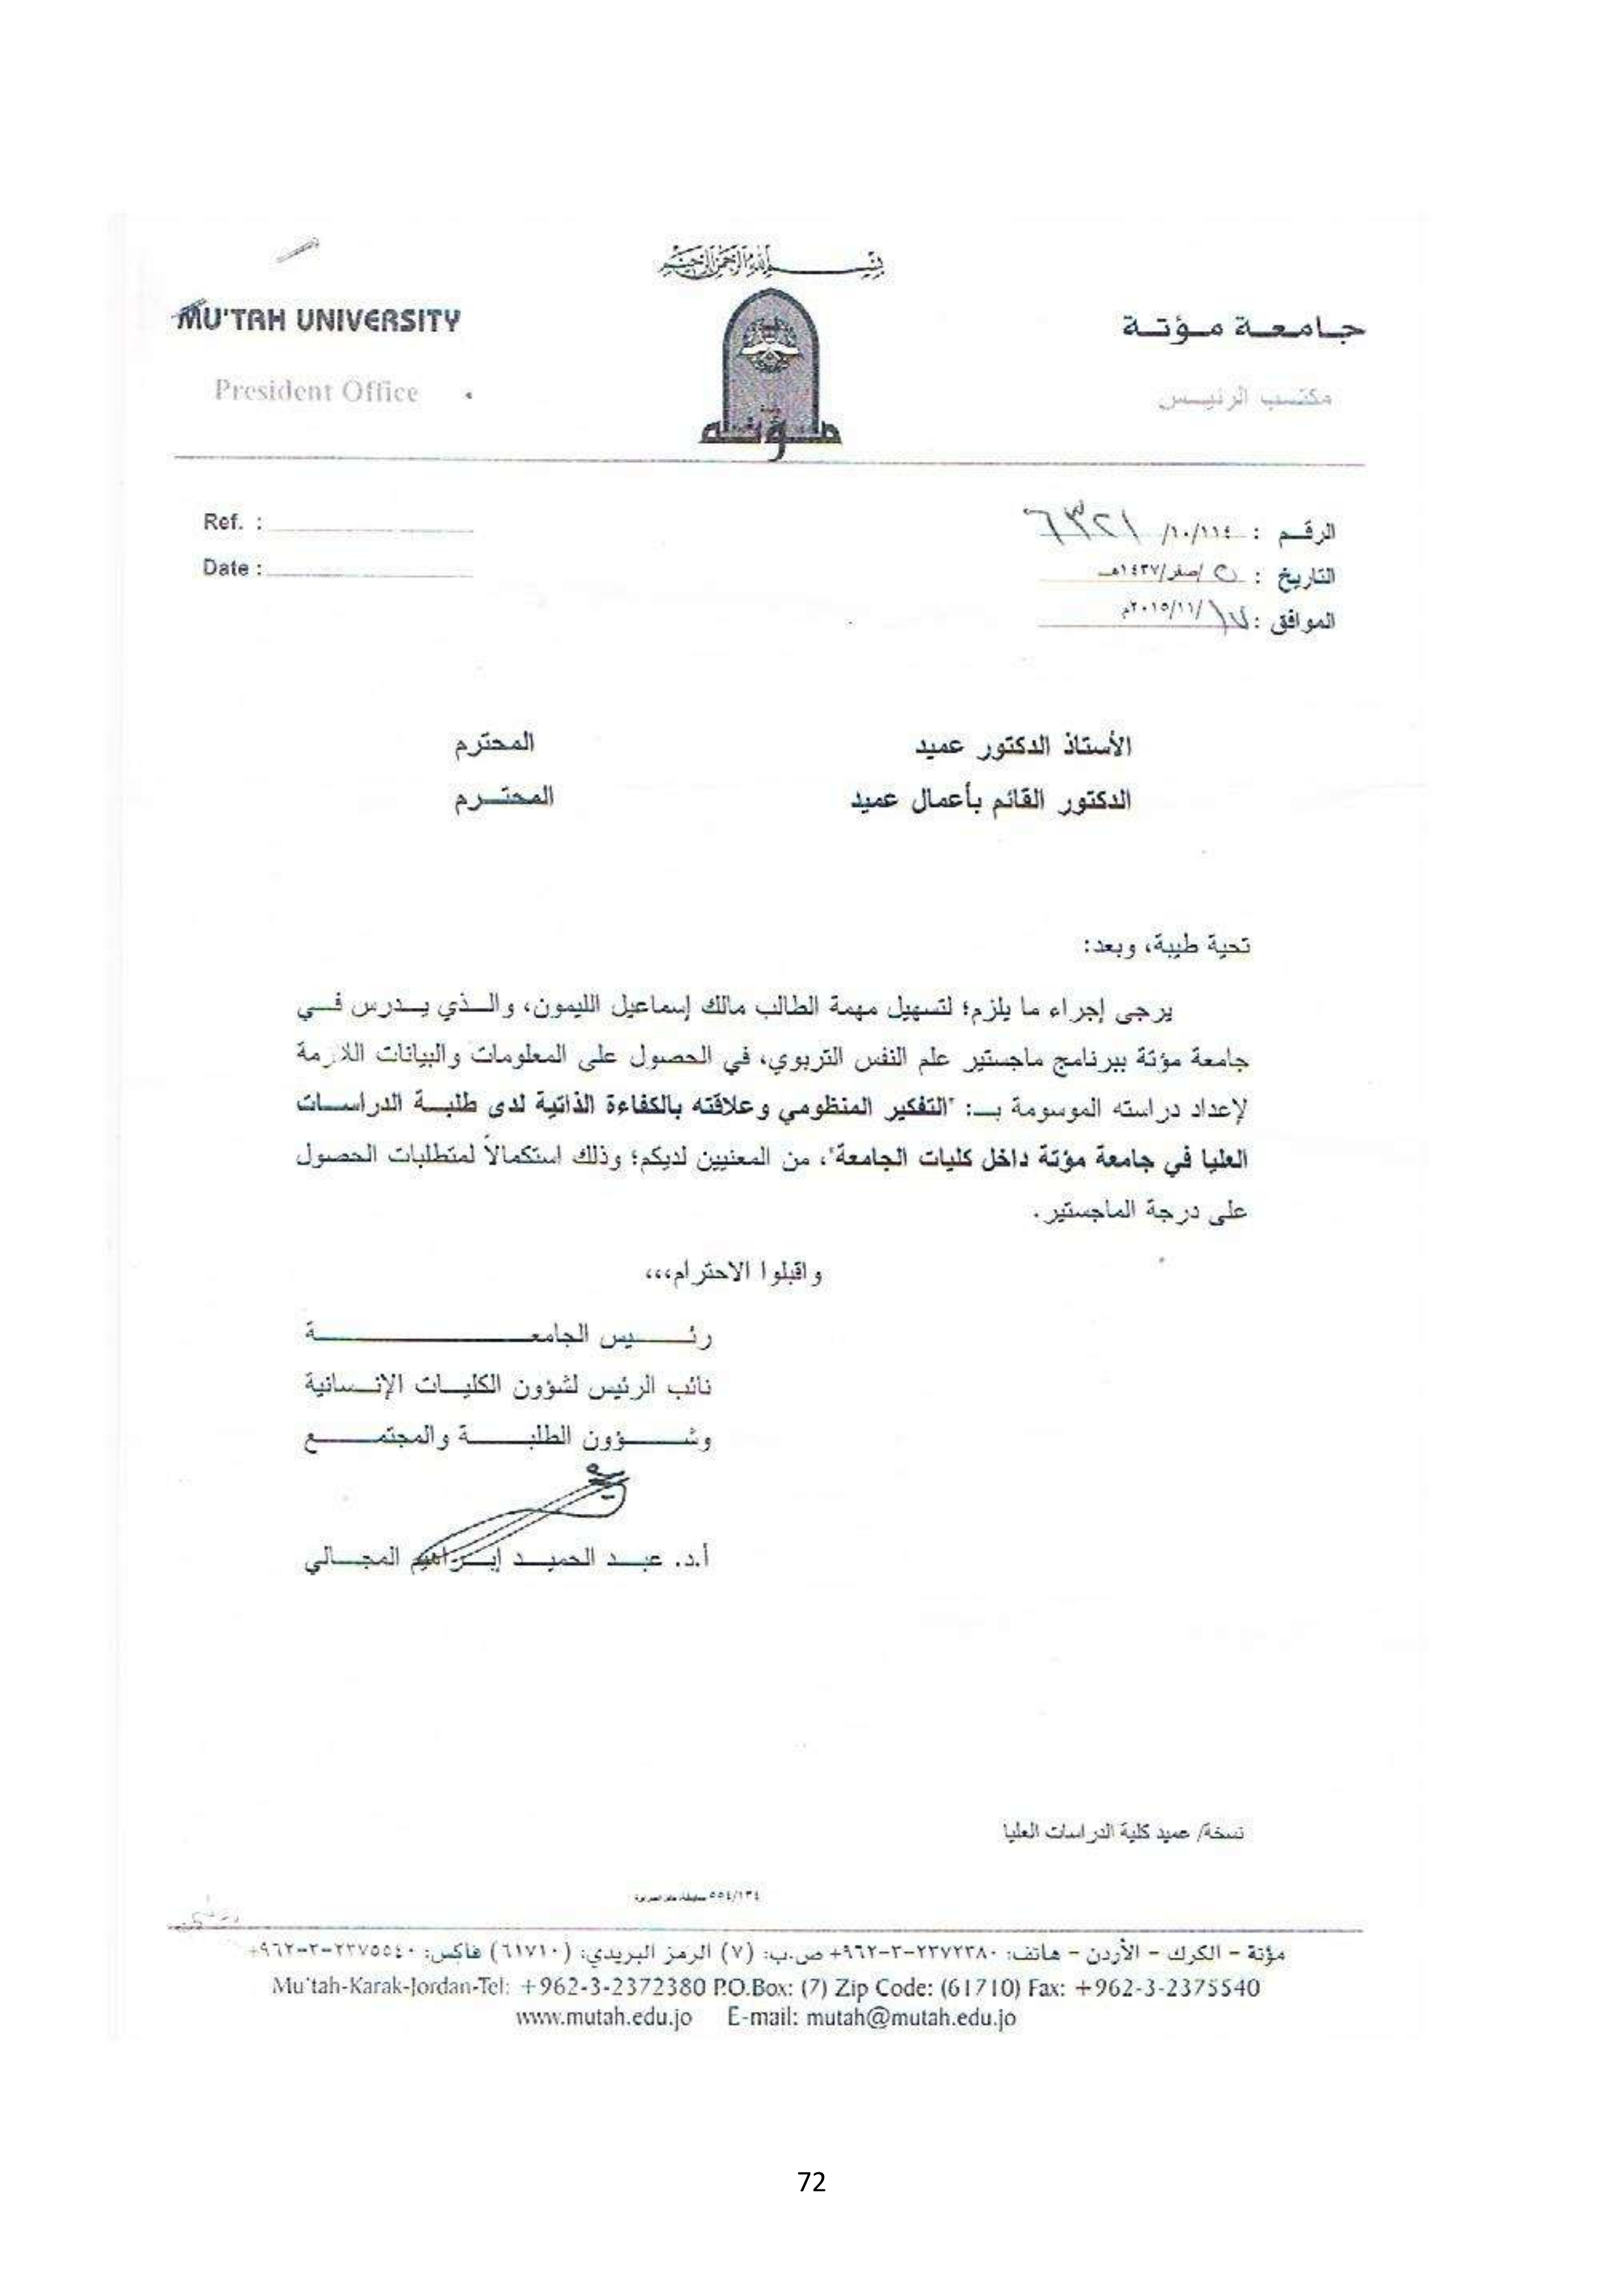 بسم الله الرحمن الرحيم
جامعة مؤتة
MU'TAH UNIVERSITY
مكتب الرئيس
President Office
مؤتة
الرقم : ١١٤/١٠/ ٦٣٢١
Ref. :
التاريخ : /صفر/١٤٣٧هـ
Date :
الموافق : ١٧/١١/٢٠١٥م
الأستاذ الدكتور عميد المحترم
الدكتور القائم بأعمال عميد المحترم
تحية طيبة، وبعد:
يرجى إجراء ما يلزم؛ لتسهيل مهمة الطالب مالك إسماعيل الليمون، والذي يدرس في
جامعة مؤتة ببرنامج ماجستير علم النفس التربوي، في الحصول على المعلومات والبيانات اللازمة
لإعداد دراسته الموسومة بـ: "التفكير المنظومي وعلاقته بالكفاءة الذاتية لدى طلبة الدراسات
العليا في جامعة مؤتة داخل كليات الجامعة"، من المعنيين لديكم؛ وذلك استكمالاً لمتطلبات الحصول
على درجة الماجستير.
واقبلوا الاحترام،،،
رئيس الجامعة
نائب الرئيس لشؤون الكليات الإنسانية
وشؤون الطلبة والمجتمع
أ.د. عبد الحميد إبراهيم المجالي
نسخة/ عميد كلية الدراسات العليا
٥٥٤/١٣٤
مؤتة - الكرك - الأردن - هاتف: ٢٣٧٢٣٨٠-٣-٩٦٢+ ص.ب: (٧) الرمز البريدي: (٦١٧١٠) فاكس: ٢٣٧٥٥٤٠-٣-٩٦٢+
Mu'tah-Karak-Jordan-Tel: +962-3-2372380 P.O.Box: (7) Zip Code: (61710) Fax: +962-3-2375540
www.mutah.edu.jo E-mail: mutah@mutah.edu.jo
72